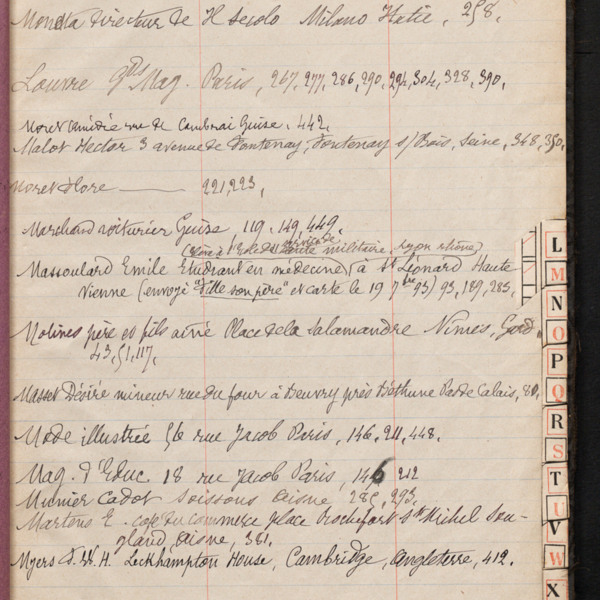 Monetta directeur de Il Secolo Milano Italie, 258.
Louvre gds Mag. Paris, 267, 277, 286, 290, 294, 304, 328, 390.
Moret Amédée rue de Cambrai Guise. 442.
Malot Hector 3 avenue de Fontenay, Fontenay s/ Bois, Seine, 348, 350.
Moret Flore ——— 221, 223,
Marchand voiturier Guise, 119. 149, 449.
(élève à l'Ecole du service de santé militaire, Lyon rhône)
Massoulard Emile Etudiant en médecine, à St Léonard Haute
Vienne (envoyé "à fille son père" et carte le 19 7bre 93) 93, 189, 283,
Molines père et fils ainé Place de la Salamandre Nîmes, Gard.
43, 51, 117,
Masset Désiré mineur rue du four à Beuvry près Béthune Pas de Calais, 80,
Mode illustrée 56 rue Jacob Paris, 146, 211, 448.
Mag. d'Educ 18 rue Jacob Paris, 146 212
Munier Cadot Soissons Aisne 285, 293.
Martens E. café du commerce place Rochefort St Michel Sou-
gland, Aisne, 381.
Myers F. W. H. Leckhampton House, Cambridge, Angleterre, 412.
L
M
N
O
P
Q
R
S
T
U
V
W
X